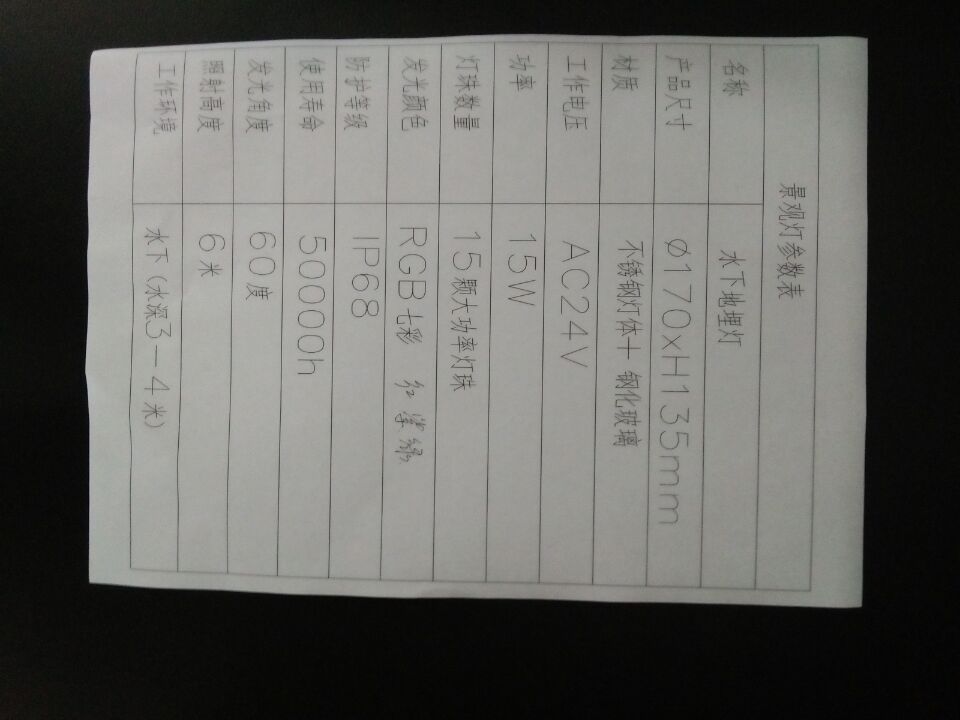 景观灯参数表
名称 水下地埋灯
产品尺寸 Ø170xH135mm
材质 不锈钢灯体+ 钢化玻璃
工作电压 AC24V
功率 15W
灯珠数量 15颗大功率灯珠
发光颜色 RGB七彩 红 紫 绿
防护等级 IP68
使用寿命 50000h
发光角度 60度
照射高度 6米
工作环境 水下(水深3-4米)